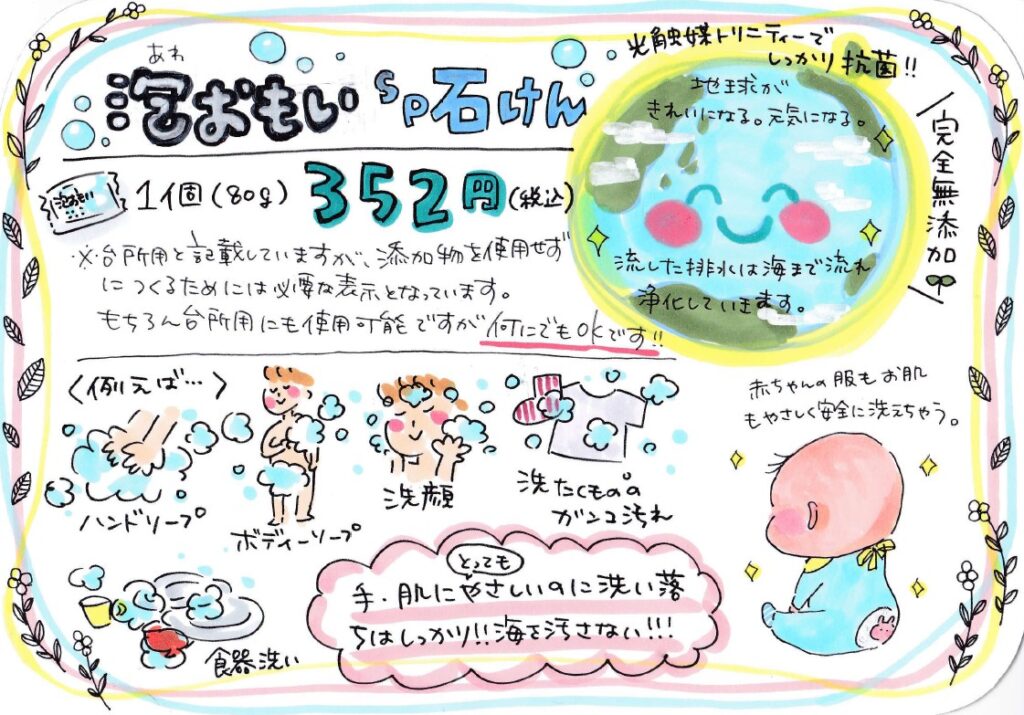 あわ
泡おもい SP石けん
光触媒トリニティーで
しっかり抗菌!!
地球が
きれいになる。元気になる。
完全無添加
泡おもい
1個(80g) 352円(税込)
流した排水は海まで流れ
浄化していきます。
※台所用と記載していますが、添加物を使用せず
につくるためには必要な表示となっています。
もちろん台所用にも使用可能ですが何にでもOKです!!
〈例えば…〉
赤ちゃんの服もお肌
もやさしく安全に洗えちゃう。
ハンドソープ
ボディーソープ
洗顔
洗たくものの
ガンコ汚れ
食器洗い
とっても
手・肌にやさしいのに洗い落
ちはしっかり!!海を汚さない!!!